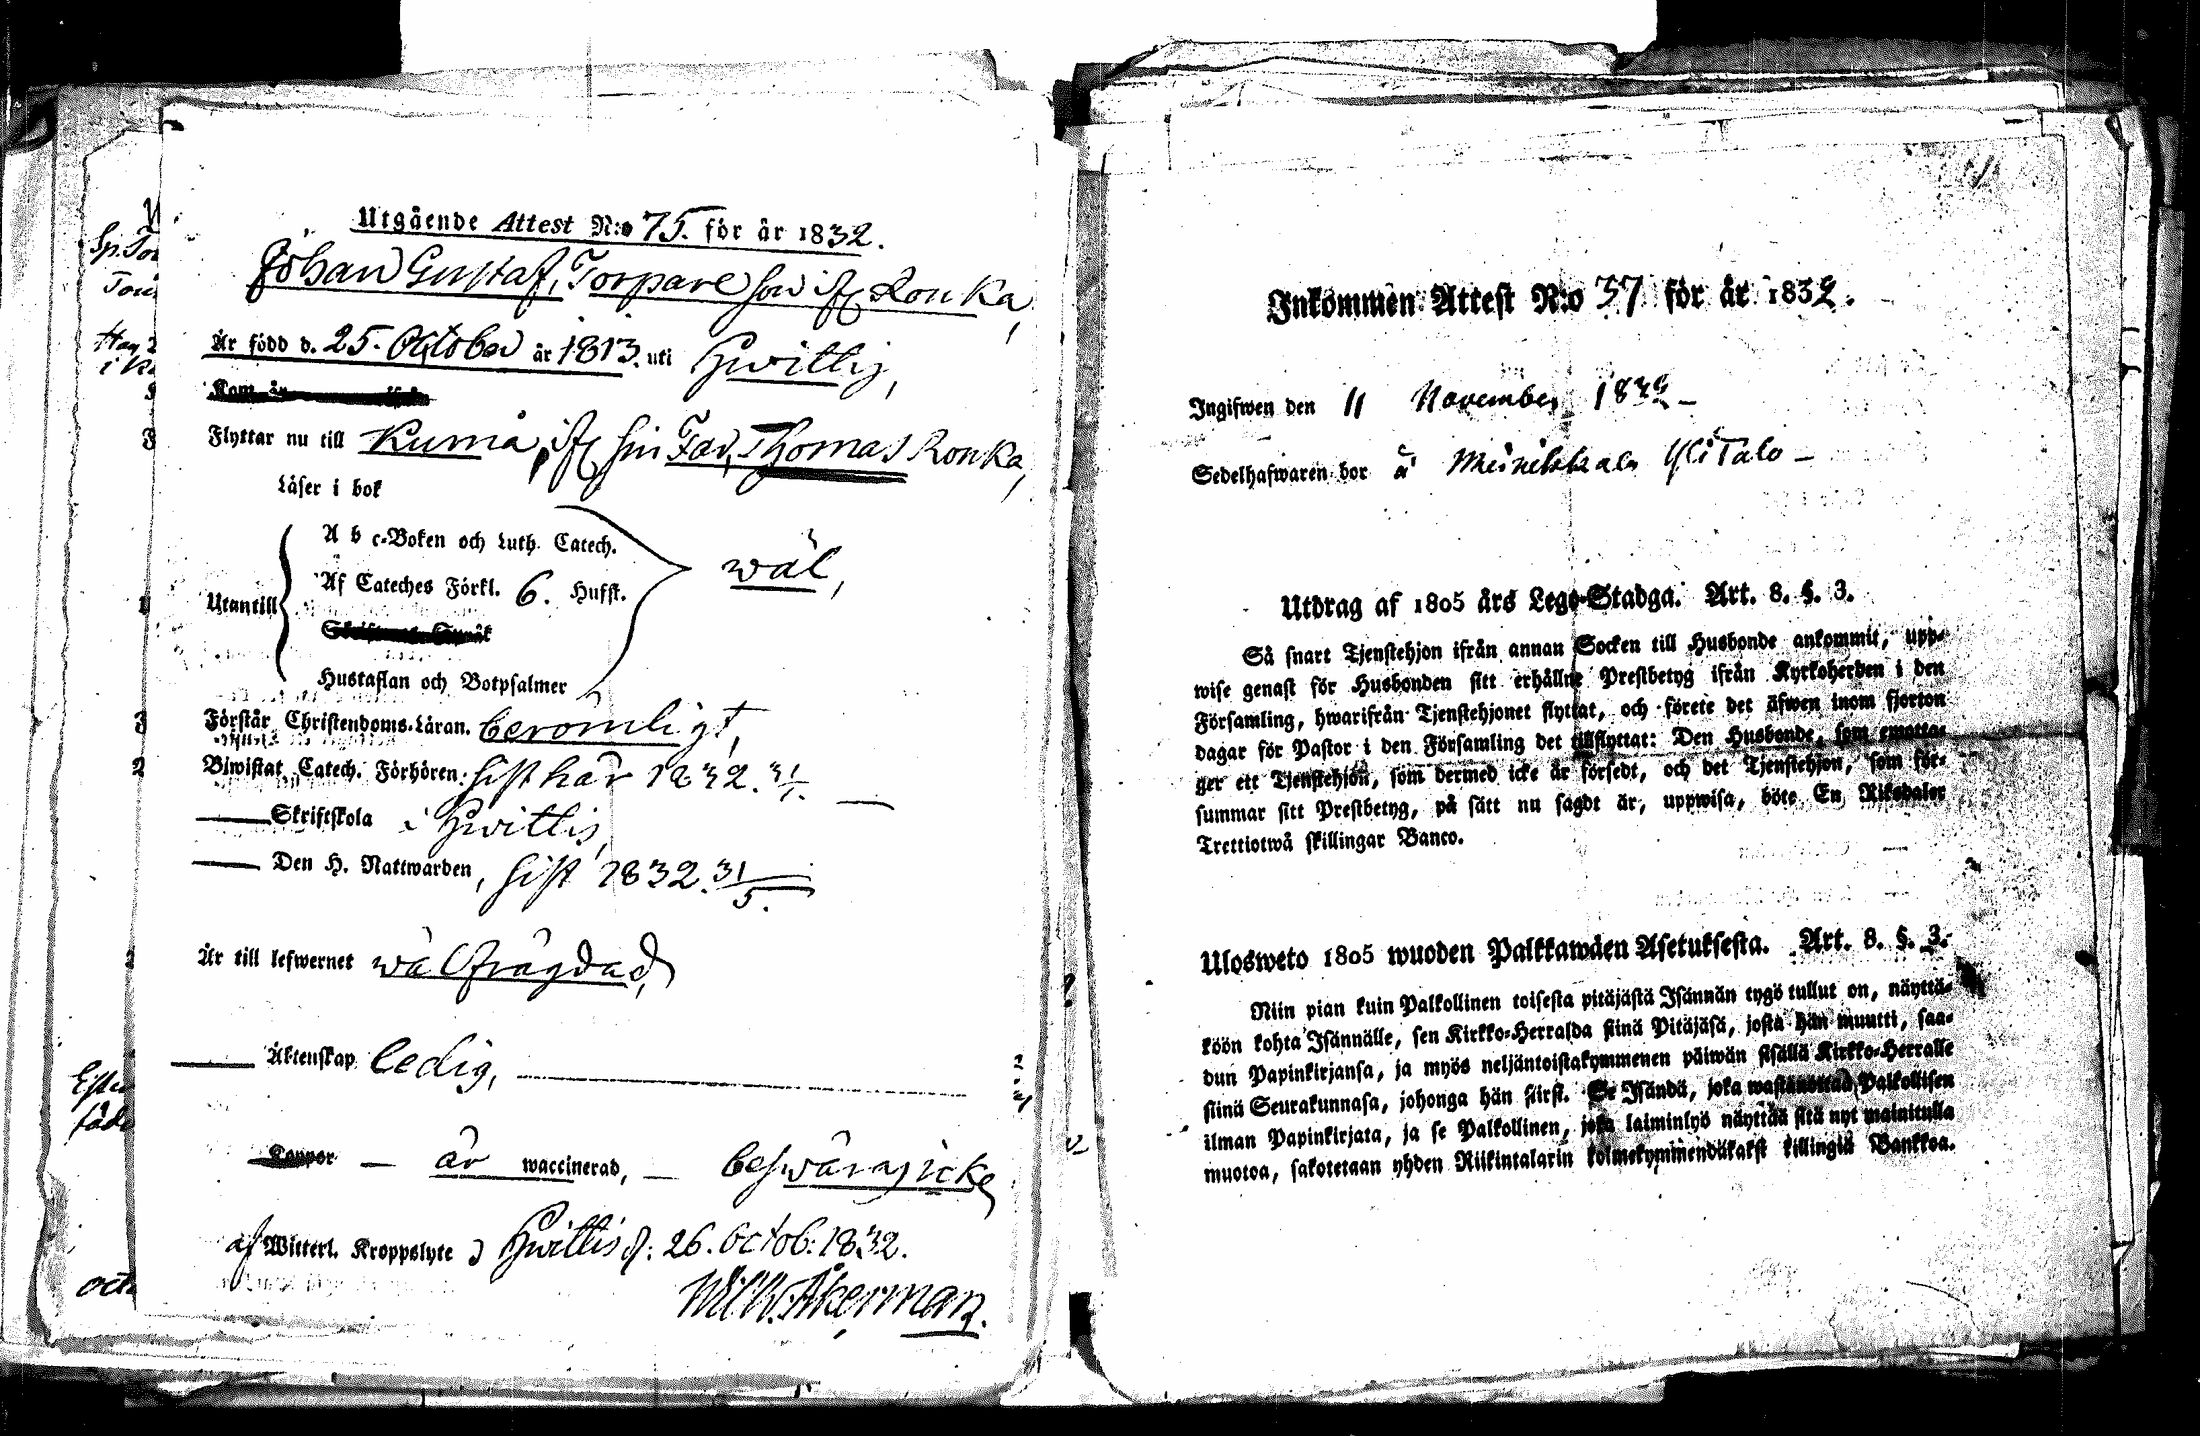 Utgående Attest N:o 75. för år 1832.
Johan Gustaf, Torpare son ifr Ronka,
Är född d. 25. October år 1813. uti Hwittis,
Kom år ifrån
Flyttar nu till Kumå, ifr sin Fad, Thomas Ronka,
Läser i bok
A b c-Boken och Luth. Catech.
Af Cateches Förkl. 6. Hufst.
wäl,
Utantill
Hustaflan och Botpsalmer
Förstår Christendoms-Läran. berömligt,
Biwistat Catech. Förhören: sist här 1832. 31/1.
Skriftskola i Hwittis,
Den H. Nattwarden, sist 1832. 31/5.
Är till lefwernet wälfrägdad,
Äktenskap ledig,
Koppor — är waccinerad, — beswäras icke
af Witterl. Kroppslyte Hwittis d. 26. Octob: 1832.
Wilh. Åkerman.
Inkommen Attest N:o 37 för år 1832.
Ingifwen den 11 November 1832 –
Sedelhafwaren bor å Yli Talo –
Utdrag af 1805 års Lego-Stadga. Art. 8. §. 3.
Så snart Tjenstehjon ifrån annan Socken till Husbonde ankommit, upp-
wise genast för Husbonden sitt erhållne Prestbetyg ifrån Kyrkoherden i den
Församling, hwarifrån Tjenstehjonet flyttat, och förete det äfwen inom fjorton
dagar för Pastor i den Församling det tillflyttat: Den Husbonde, som emotta-
ger ett Tjenstehjon, som dermed icke är försedt, och det Tjenstehjon, som för-
summar sitt Prestbetyg, på sätt nu sagdt är, uppwisa, böte En Riksdaler
Trettiotwå skillingar Banco.
Ulosweto 1805 wuoden Palkkawäen Asetuksesta. Art. 8. §. 3.
Niin pian kuin Palkollinen toisesta pitäjästä Isännän tygö tullut on, näyttä-
köön kohta Isännälle, sen Kirkko-Herralda siinä Pitäjäsä, josta hän muutti, saa-
dun Papinkirjansa, ja myös neljäntoistakymmenen päiwän sisällä Kirkko-Herralle
siinä Seurakunnasa, johonga hän siirst. Se Isändä, joka wastanottaa Palkollisen
ilman Papinkirjata, ja se Palkollinen, joka laiminlyö näyttää sitä nyt mainitulla
muotoa, sakotetaan yhden Riikintalarin kolmekymmendäkaksi killingiä Bankkoa.